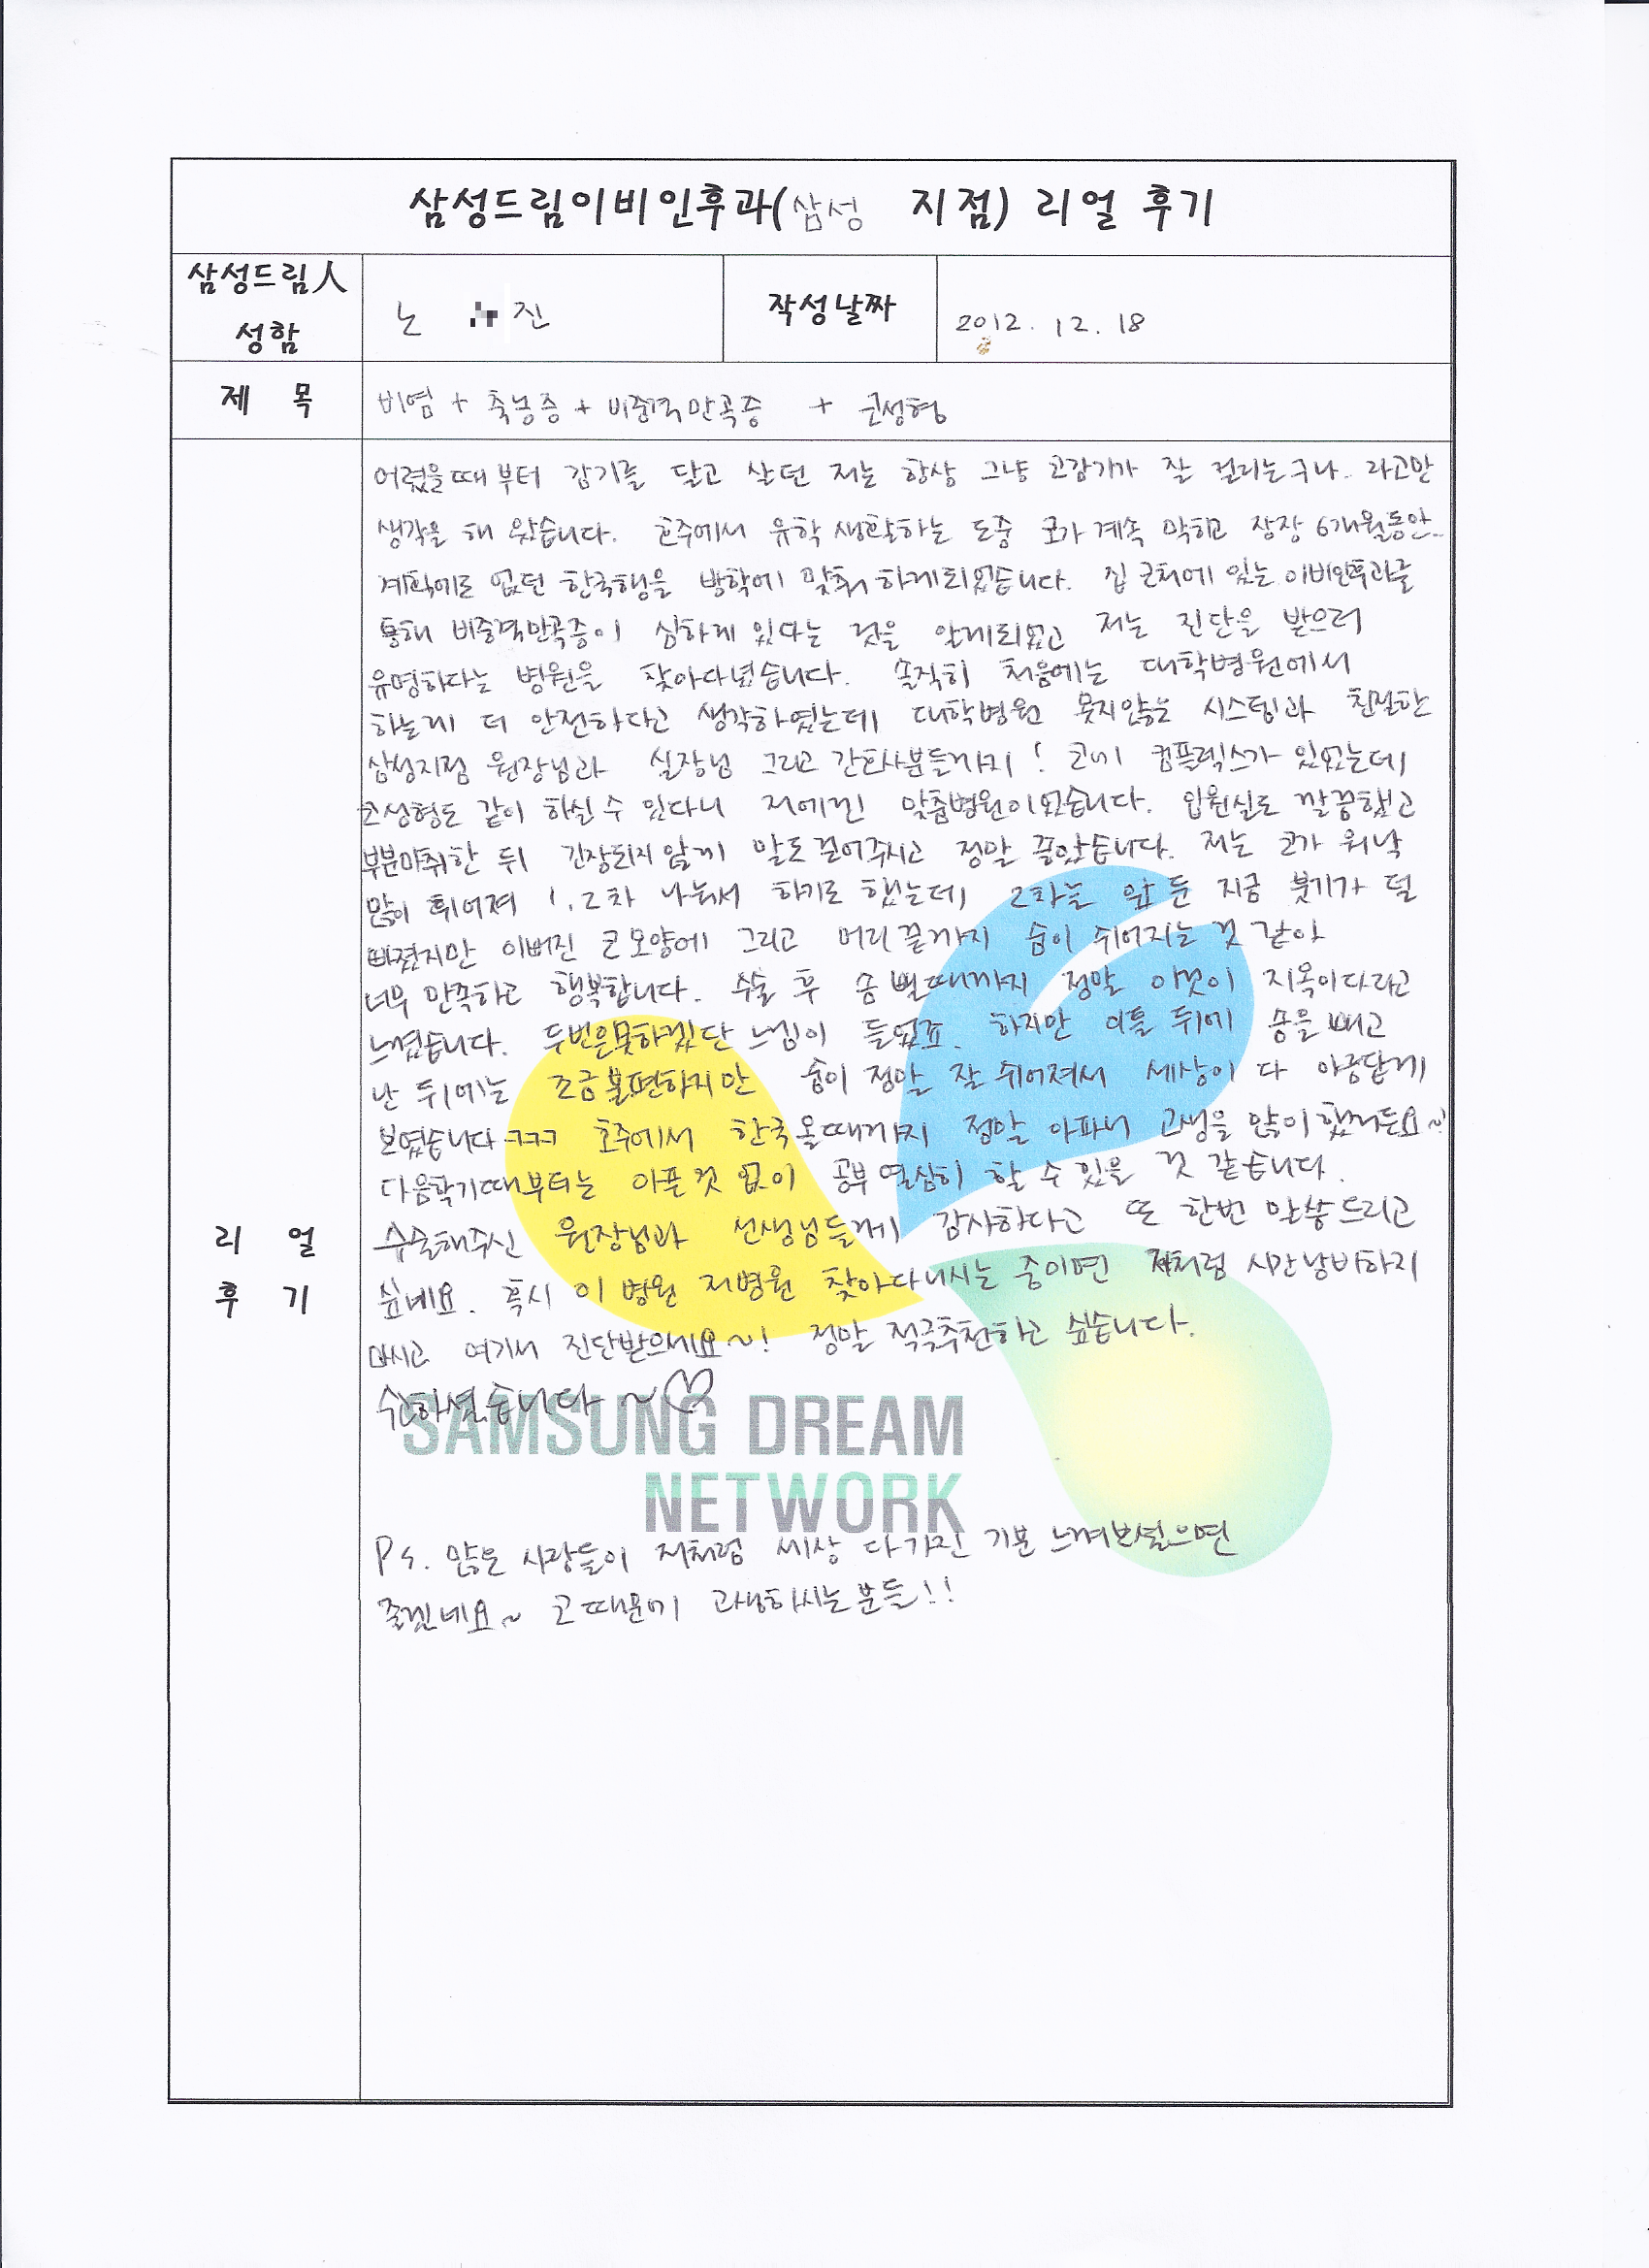 삼성드림이비인후과(삼성 지점) 리얼 후기
삼성드림人
성함
노 진
작성날짜
2012. 12. 18
제 목
비염 + 축농증 + 비중격만곡증 + 코성형
어렸을때부터 감기를 달고 살던 저는 항상 그냥 코감기가 잘 걸리는구나.. 라고만
생각을 해 왔습니다. 호주에서 유학 생활하는 도중 코가 계속 막히고 장장 6개월동안..
계획에도 없던 한국행을 방학에 맞춰 하게되었습니다. 집 근처에 있는 이비인후과를
통해 비중격만곡증이 심하게 있다는 것을 알게되었고 저는 진단을 받으러
유명하다는 병원을 찾아다녔습니다. 솔직히 처음에는 대학병원에서
하는게 더 안전하다고 생각하였는데 대학병원 못지않는 시스템과 친절한
삼성지점 원장님과 실장님 그리고 간호사분들까지! 코에 컴플렉스가 있었는데
코성형도 같이 하실 수 있다니 저에겐 맞춤병원이었습니다. 입원실도 깔끔했고
부분마취한 뒤 긴장되지 않게 말도 걸어주시고 정말 좋았습니다. 저는 코가 워낙
많이 휘어져 1, 2차 나눠서 하기로 했는데 2차를 앞 둔 지금 붓기가 덜
빠졌지만 이뻐진 코 모양에 그리고 머리 끝까지 숨이 쉬어지는 것 같아
너무 만족하고 행복합니다. 수술 후 솜 뺄때까지 정말 이것이 지옥이다라고
느꼈습니다. 두번은못하겠단 느낌이 들었죠. 하지만 이틀 뒤에 솜을 빼고
난 뒤에는 조금불편하지만 숨이 정말 잘 쉬어져서 세상이 다 아름답게
보였습니다 ㅋㅋㅋ 호주에서 한국올때까지 정말 아파서 고생을 많이했거든요~!
다음학기때부터는 아픈것 없이 공부 열심히 할 수 있을 것 같습니다.
리 얼
후 기
수술해주신 원장님과 선생님들께 감사하다고 또 한번 말씀드리고
싶네요. 혹시 이 병원 저병원 찾아다니시는 중이면 저처럼 시간낭비하지
마시고 여기서 진단받으세요~! 정말 적극추천하고 싶습니다.
수고하셨습니다 ~♡
SAMSUNG DREAM
NETWORK
Ps. 많은 사람들이 저처럼 세상 다가진 기분 느껴보셨으면
좋겠네요~ 코 때문에 고생하시는분들!!